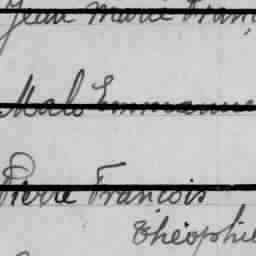 Jean Marie Franç
Malo Emmanue
Pierre François
Théophile